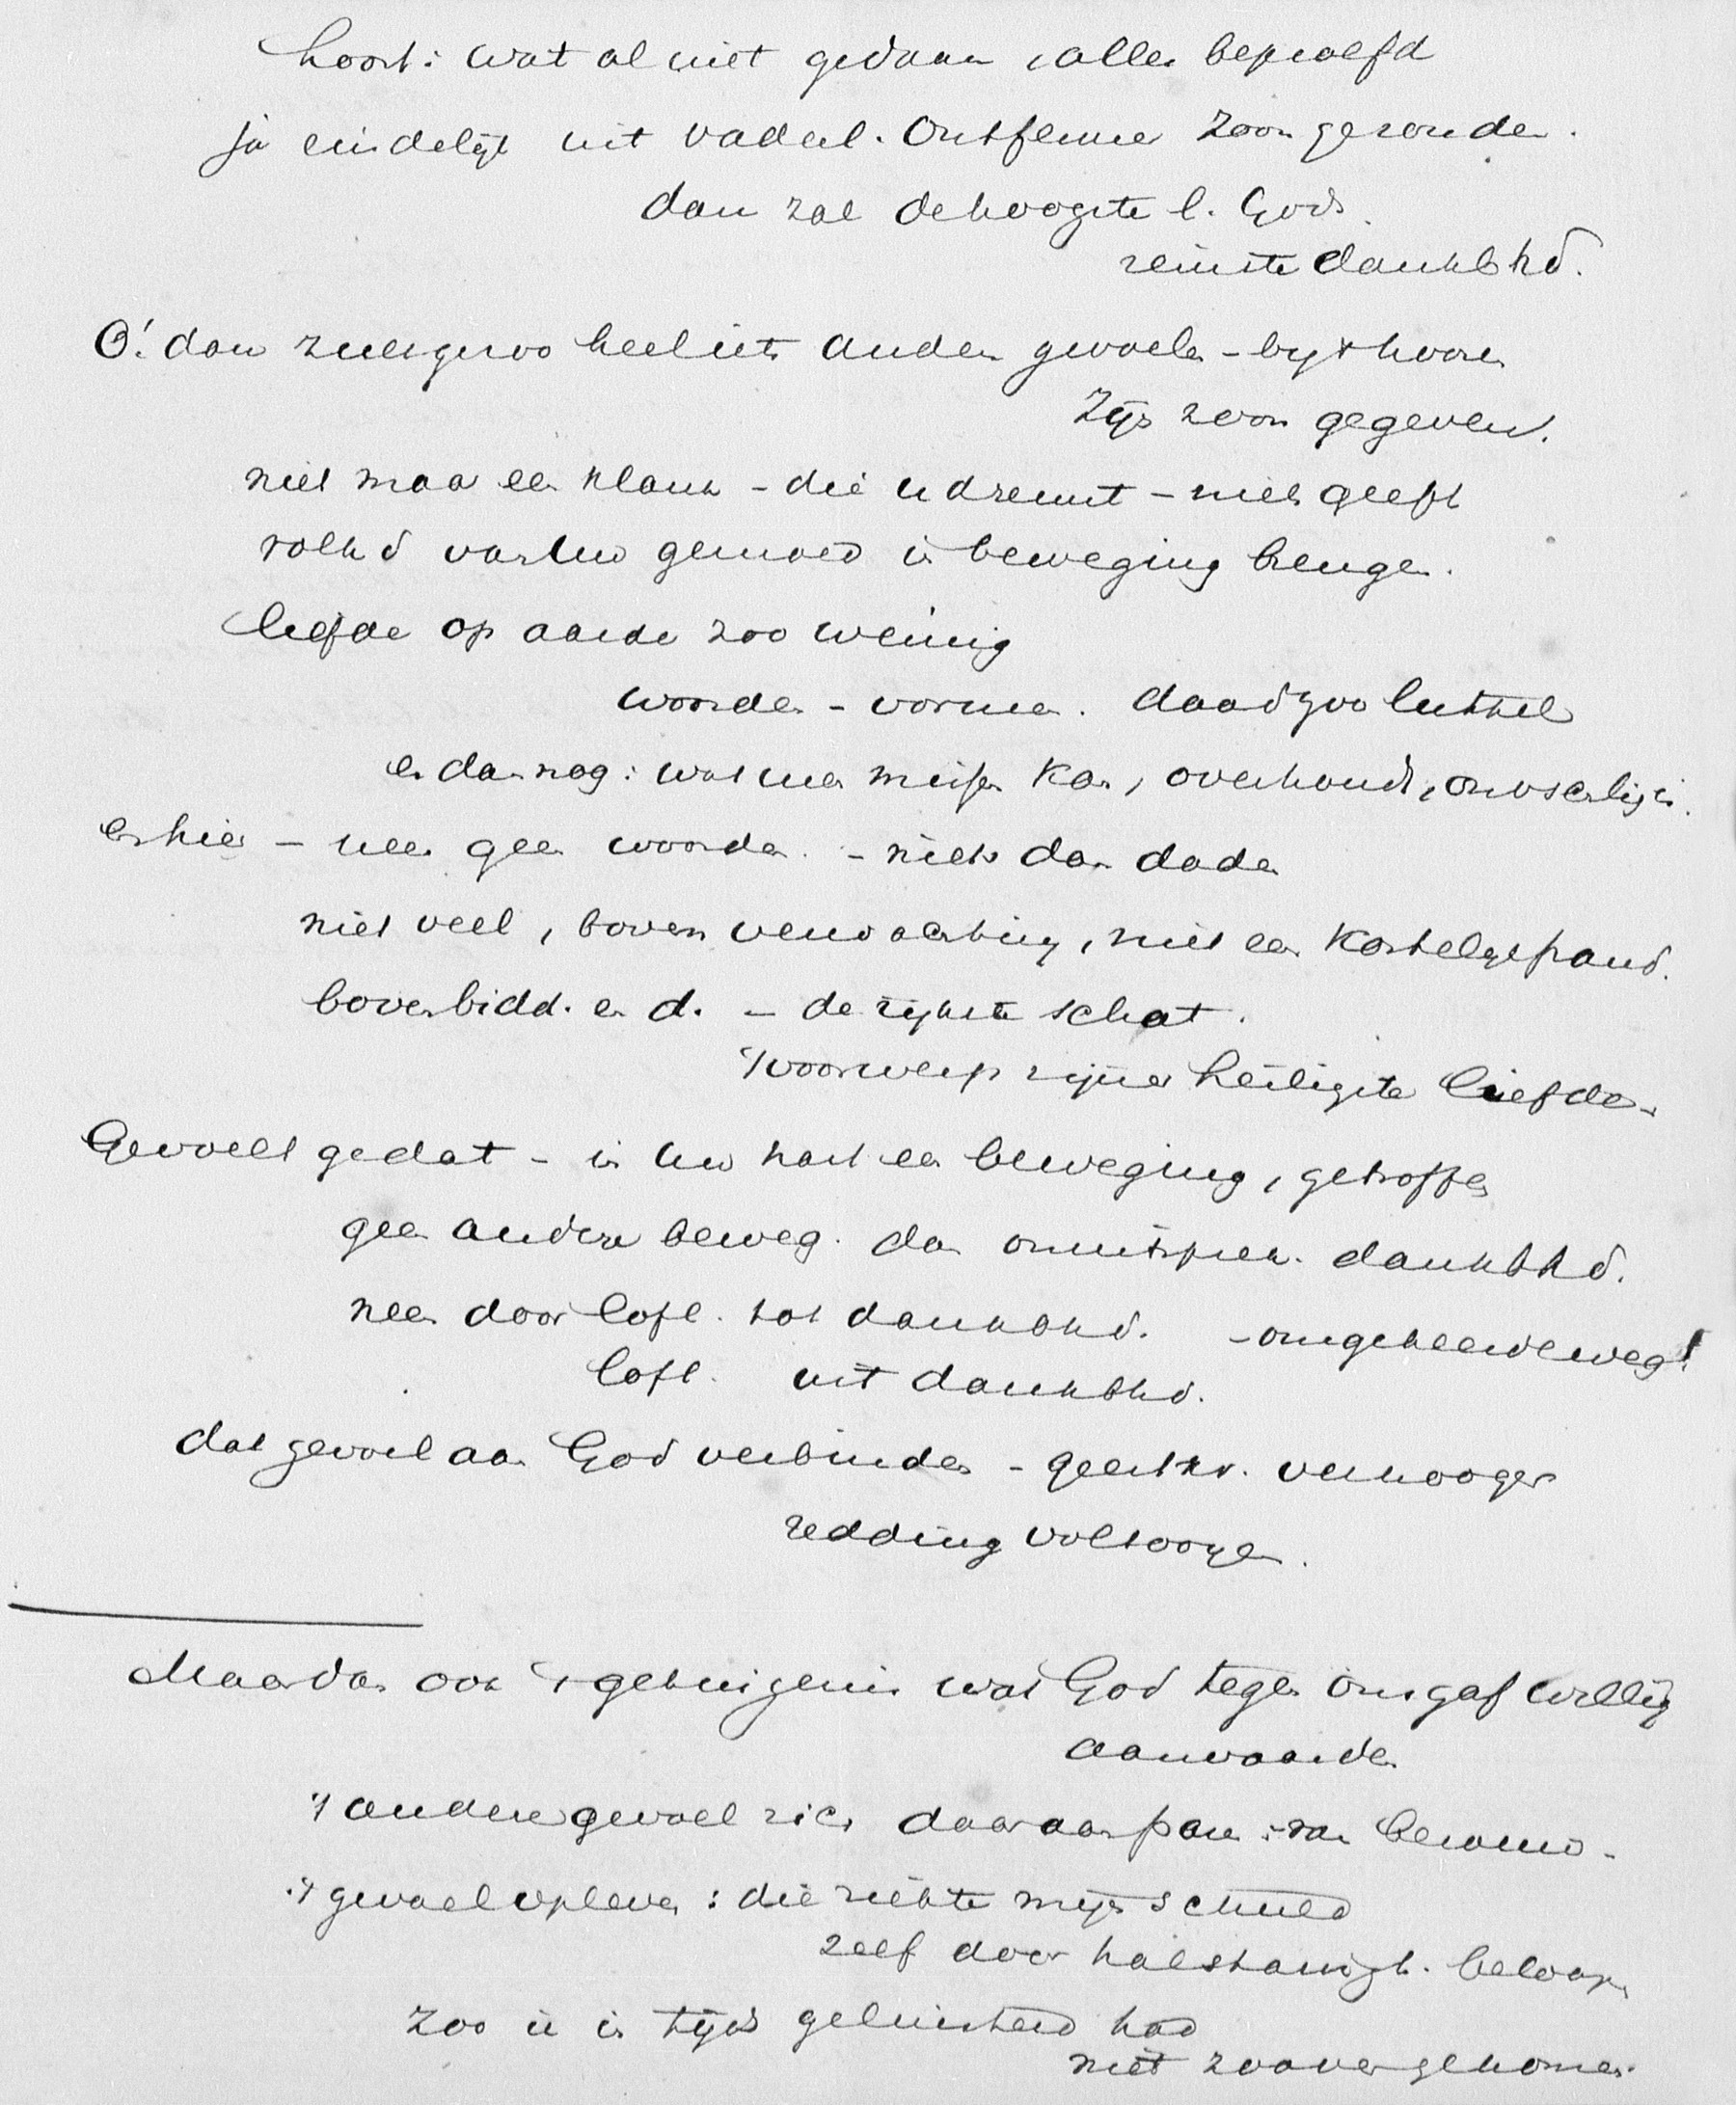 hoort: wat al niet gedaan, alles beproefd
ja eindelijk uit vaderl. ontferme zoon gezonden.
dan zal de hoogste l. Gods
reinste dankbhd.
O! dan zult ge zoo heel iets anders gevoelen - by 't hooren
Zijn zoon gegeven.
niet maar een klank - die u dreunt - niets geeft
uw gemoed in beweging brengen.
liefde op aarde zoo weinig
woorden - vormen. daad zoo luttel
en dan nog: wat men missen kan, overhoudt,
en hier - neen geen woorden. - niets dan daden
niet veel, boven verwachting, niet een kostelijk pand.
boven bidd. en d. - de rijkste schat.
't voorwerp zijner heiligste liefde.
Gevoelt ge dat - in uw hart een beweging, getroffen
geen andere beweg. dan dankbhd.
neen door lofl. tot dankbhd. - omgekeerde weg!
lofl. uit dankbhd.
dat gevoel aan God verbinden - verhoogen
redding voltooyen.
Maar dan ook 't getuigenis wat God tegen ons gaf willig
aanvaarden
't andere gevoel zich daaraan paren: van berouw.
't gevoel opleven: die ziekte mijn schuld
zelf door halstarrigh. beloopen
zoo ik in tijds geluisterd had
niet zoover gekomen.